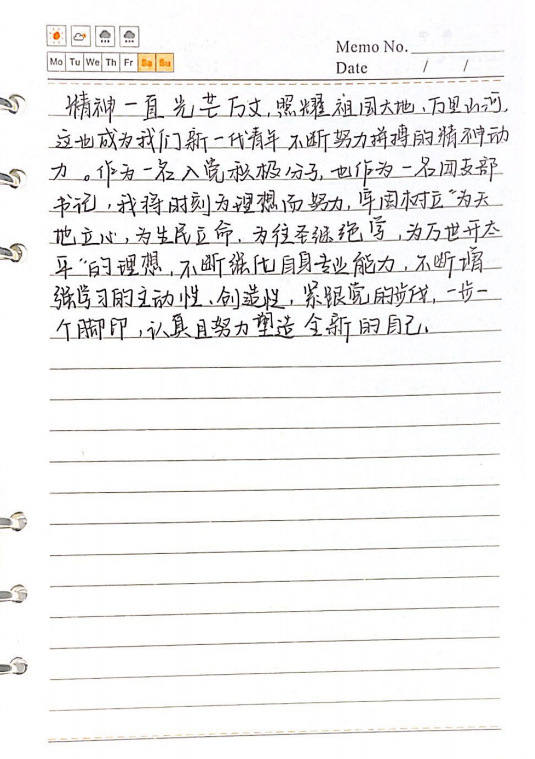 Memo No.
Mo Tu We Th Fr Sa Su
Date / /
精神一直光芒万丈,照耀祖国大地、万里山河,
这也成为我们新一代青年不断努力拼搏的精神动
力。作为一名入党积极分子,也作为一名团支部
书记,我将时刻为理想而努力,牢固树立“为天
地立心,为生民立命,为往圣继绝学,为万世开太
平”的理想,不断强化自身专业能力,不断增
强学习的主动性、创造性,紧跟党的步伐,一步一
个脚印,认真且努力塑造全新的自己。